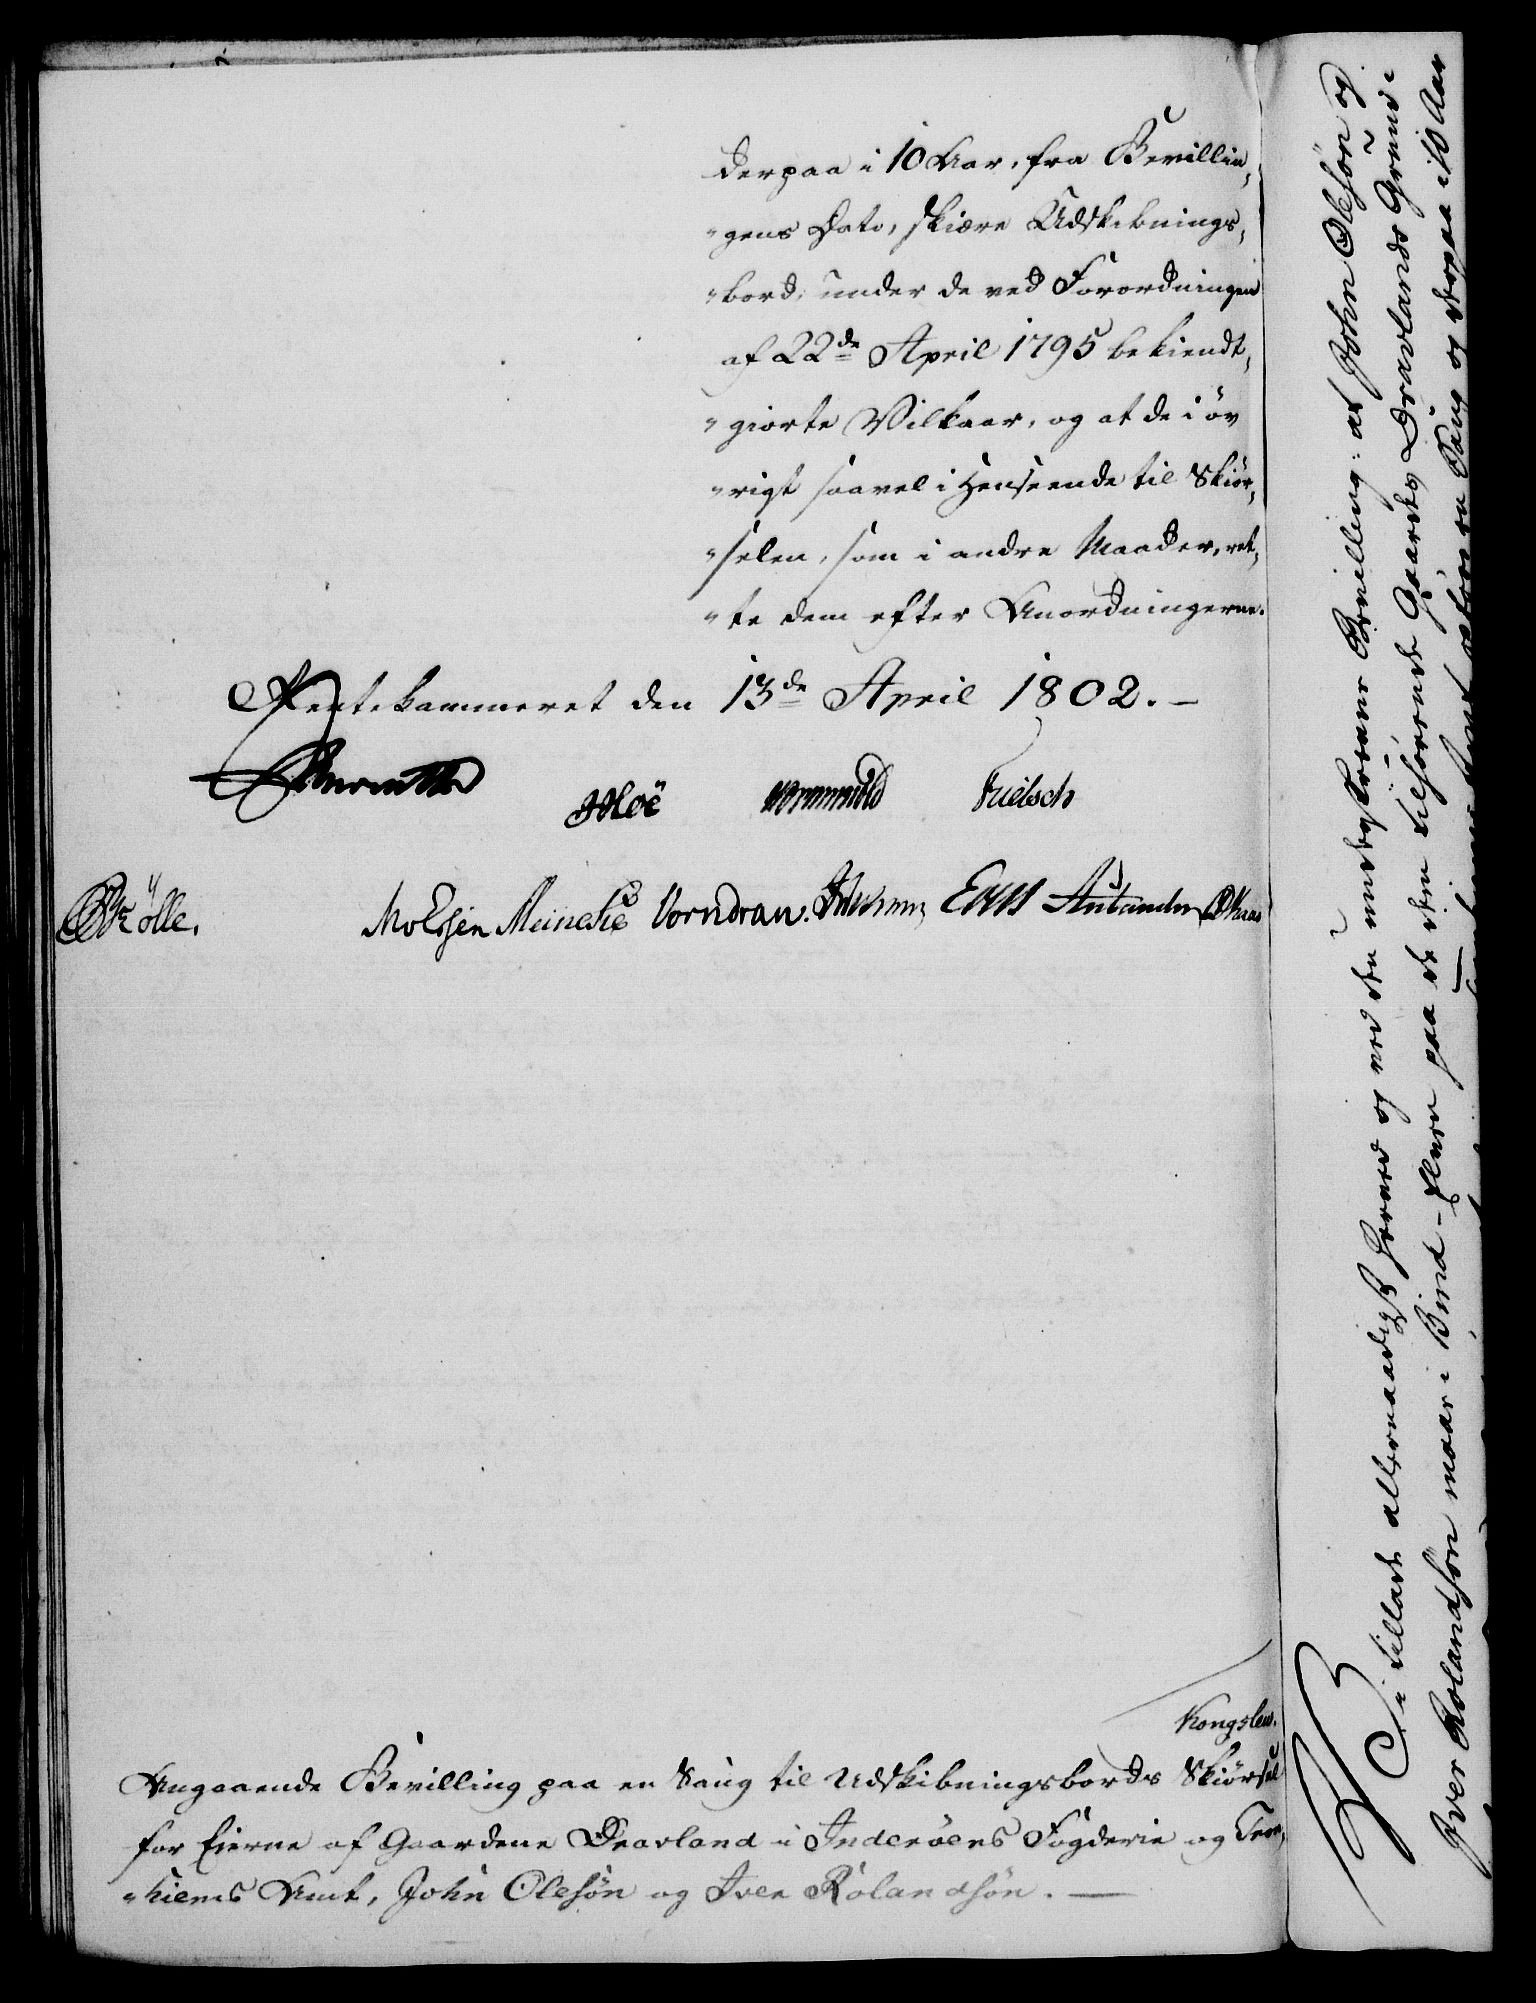 derpaa i 10 Aar, fra Bevillin„
„gens Dato, skiære Udskibnings„
„bord, under de ved Forordningen
af 22de April 1795 bekiendt„
„giorte Vilkaar, og at de i öv
„rigt saavel i Henseende til Skiör„
„selen, som i andre Maader, ret„
„te dem efter Anordningerne.
Rentekammeret den 13de April 1802. —
Hoë Wormskiold Frielsch
Kölle. Moesjen Meinche Vorndran. Aulander Kaas
Kongslew.
Angaaende Bevilling paa en Saug til Udskibningsbords Skiörsel
for Eierne af Gaardene Dravland i Inderöens Fogderie og Tron„
„hiems Amt, John Olesön og Iver Rolandsön. —
Vi tillade allernaadigst herved og ved den underskrevne Bevilling: at John Olesön og
Iver Rolandsön maae i Bind-Elven paa de dem tilhörende Gaardes Dravlands Grund i
Tronhiems Amt opföre en Saug og derpaa i 10 Aar